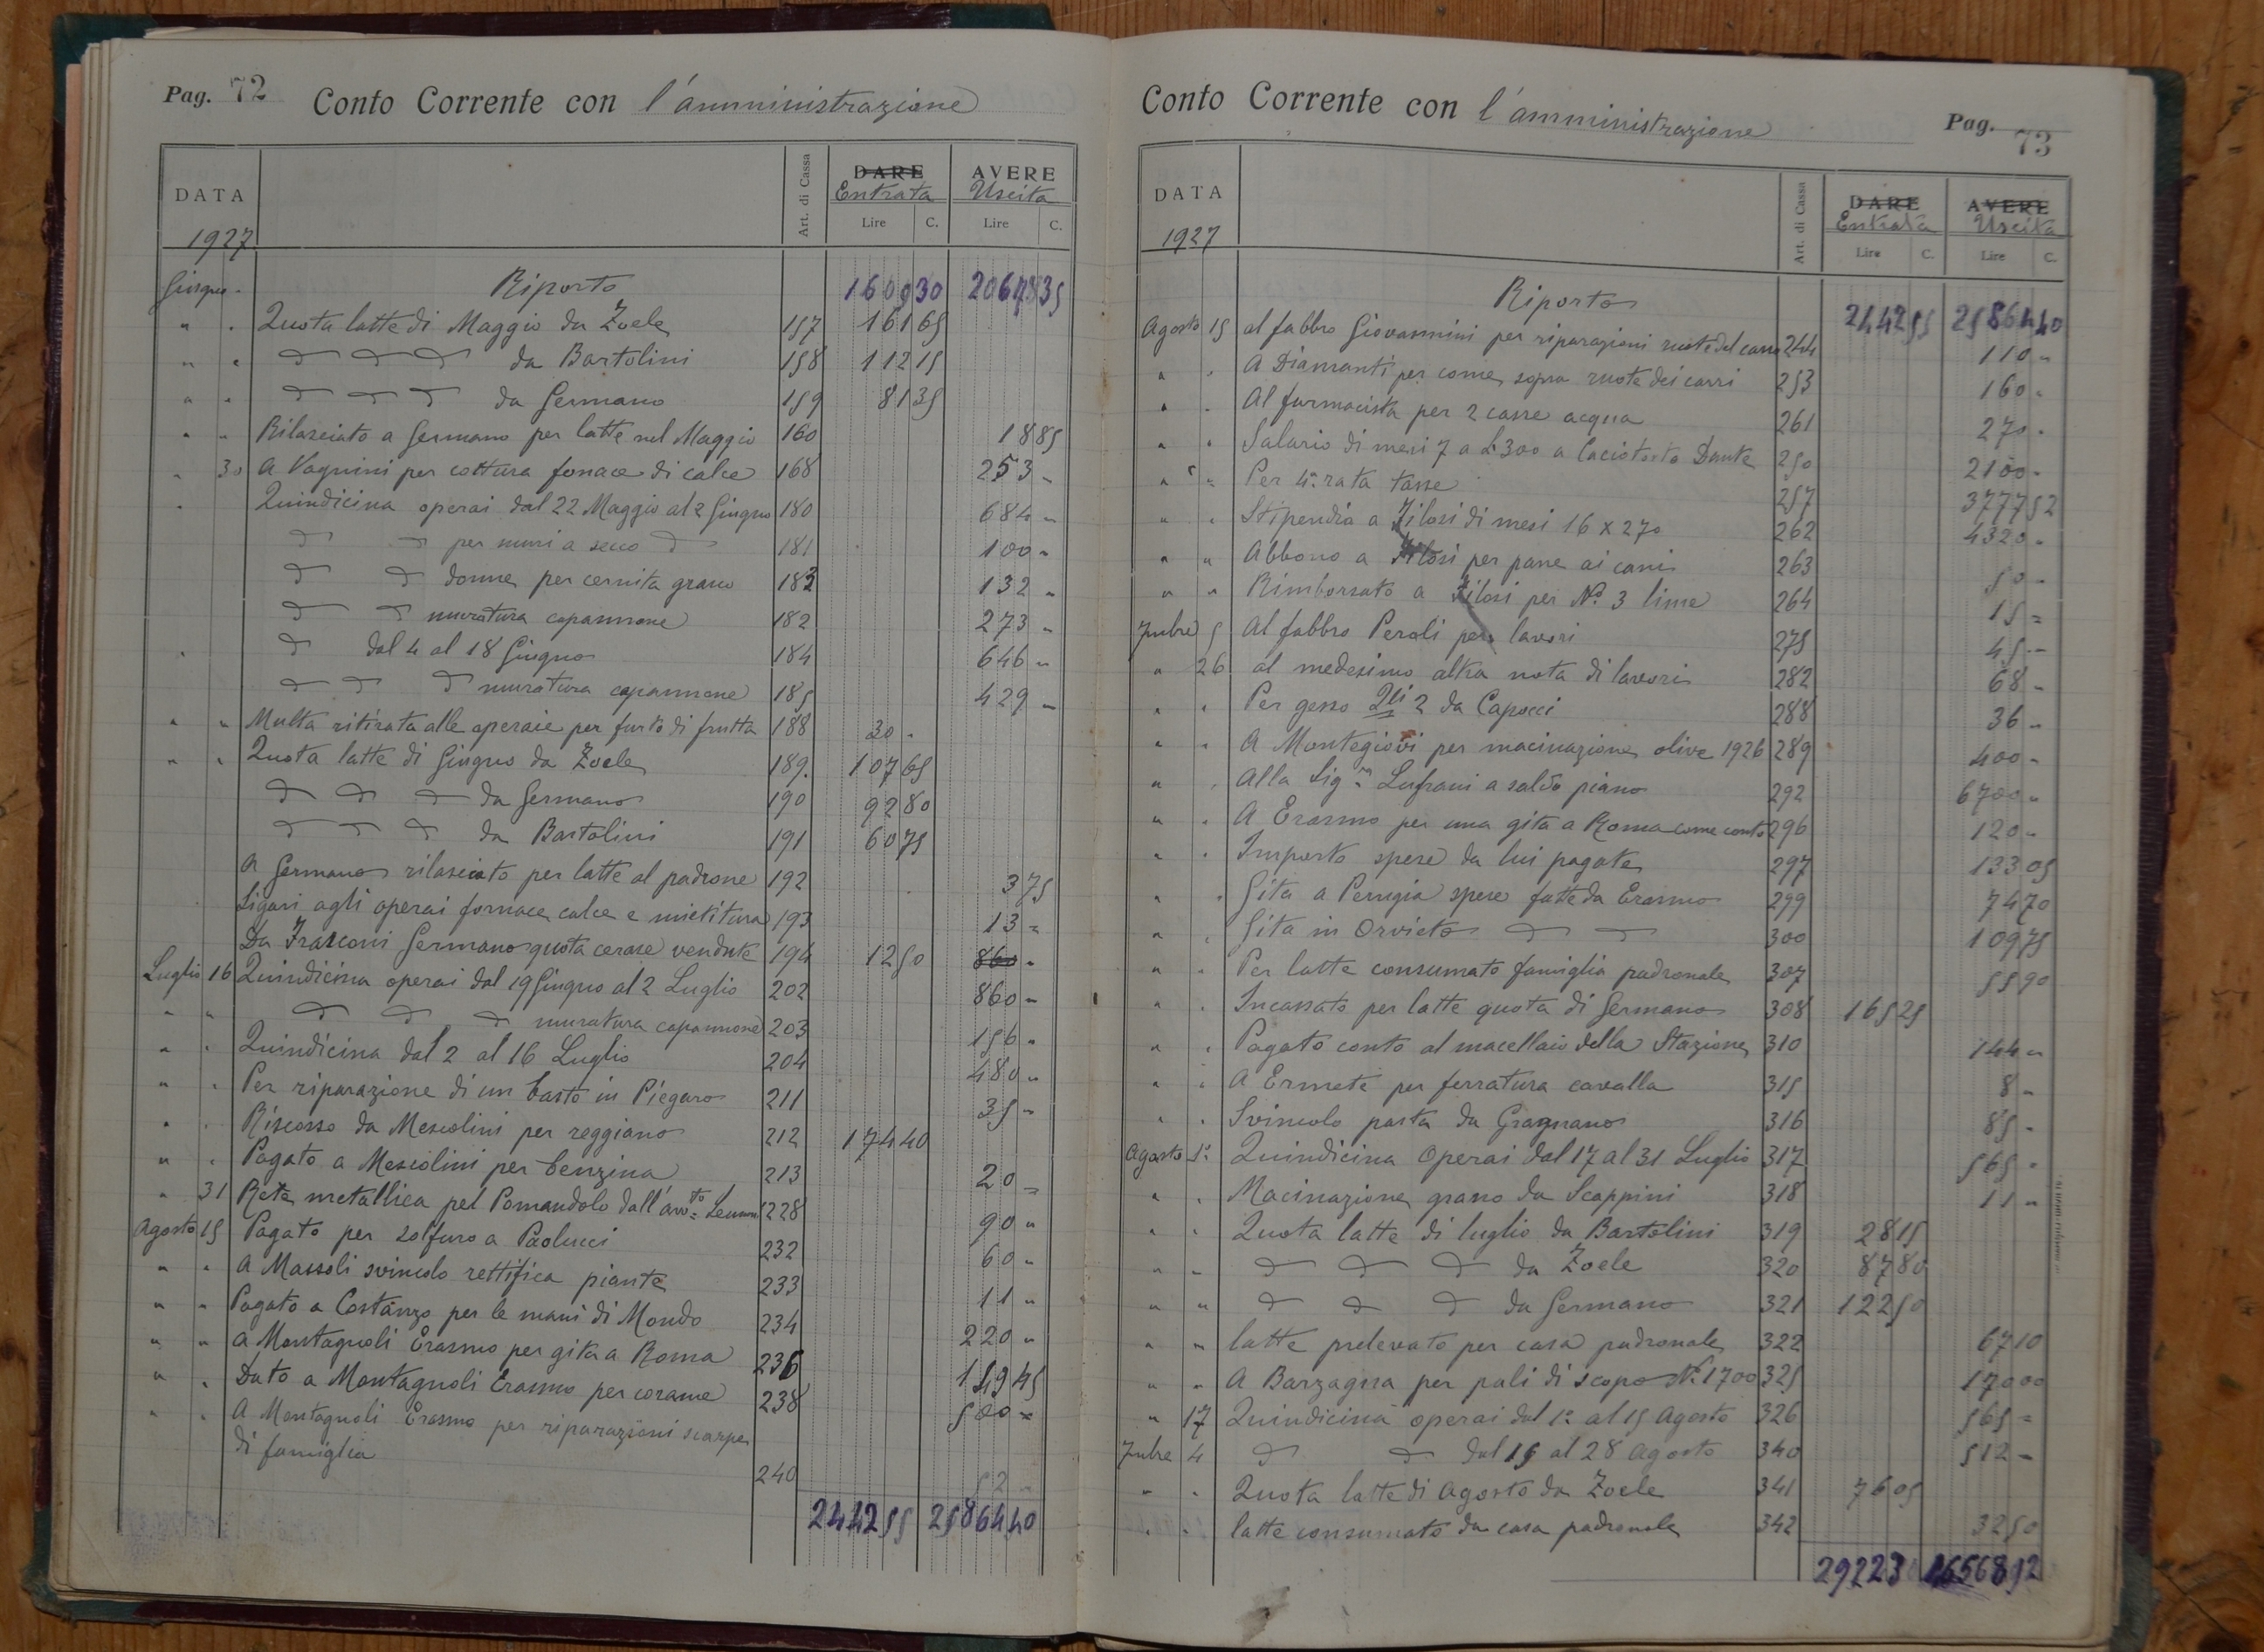 Pag. 72 Conto Corrente con l'amministrazione
DATA Art. di Cassa DARE AVERE
Entrata Uscita
Lire C. Lire C.
1927
Giugno Riporto 1609 30 20678 35
" " Quota latte di Maggio da Zoele 157 161 65
" " " " " da Bartolini 158 112 15
" " " " " da Germano 159 81 35
" " Rilasciato a Germano per latte nel Maggio 160 18 85
" 30 A Vagnini per cottura fornace di calce 168 253 "
" Quindicina operai dal 22 Maggio al 2 Giugno 180 684 "
" " per muri a secco " 181 100 "
" " donne per cernita grano 183 132 "
" " muratura capannone 182 273 "
" " dal 4 al 18 Giugno 184 646 "
" " " muratura capannone 185 429 "
" " Multa ritirata alle operaie per furto di frutta 188 30 "
" " Quota latte di Giugno da Zoele 189. 107 65
" " " da Germano 190 92 80
" " " da Bartolini 191 60 75
A Germano rilasciato per latte al padrone 192 3 75
Sigari agli operai fornace calce e mietitura 193 13 "
Da Frasconi Germano quota cerase vendute 194 12 50 860 "
Luglio 16 Quindicina operai dal 19 Giugno al 2 Luglio 202 860 "
" " " " " muratura capannone 203 156 "
" " Quindicina dal 2 al 16 Luglio 204 480 "
" " Per riparazione di un basto in Piegaro 211 35 "
" " Riscosso da Mesciolini per reggiano 212 174 40
" " Pagato a Mesciolini per benzina 213 20 "
" 31 Rete metallica pel Pomandolo dall'avv.to 228 90 "
Agosto 15 Pagato per solfuro a Paolucci 232 60 "
" " A Massoli svincolo rettifica piante 233 11 "
" " Pagato a Costanzo per le mani di Mondo 234 220 "
" " A Montagnoli Erasmo per gita a Roma 236 149 45
" " Dato a Montagnoli Erasmo per corame 238 500 "
" " A Montagnoli Erasmo per riparazioni scarpe
di famiglia 240 52 "
2442 55 25864 40
Conto Corrente con l'amministrazione Pag. 73
DATA Art. di Cassa DARE AVERE
Entrata Uscita
Lire C. Lire C.
1927
Riporto 2442 55 25864 40
Agosto 15 al fabbro Giovannini per riparazioni ruote del carro 244 110 "
" " A Diamanti per come sopra ruote dei carri 253 160 "
" " Al farmacista per 2 casse acqua 261 270 "
" " Salario di mesi 7 a L 300 a Caciotosto Dante 250 2100 "
" " Per 4a. rata tasse 257 3777 52
" " Stipendio a Filosi di mesi 16 x 270 262 4320 "
" " Abbono a Filosi per pane ai cani 263 50 "
" " Rimborsato a Filosi per No. 3 lime 264 15 "
7mbre 5 Al fabbro Peroli per lavori 275 45 "
" 26 al medesimo altra nota di lavori 282 68 "
" " Per gesso Qli 2 da Capocci 288 36 "
" " A Montegiovi per macinazione olive 1926 289 400 "
" " Alla Sig.ra Lufrani a saldo piano 292 6700 "
" " A Erasmo per una gita a Roma come conto 296 120 "
" " Importo spese da lui pagate 297 133 05
" " Gita a Perugia spese fatte da Erasmo 299 74 70
" " Gita in Orvieto " " 300 109 75
" " Per latte consumato famiglia padronale 307 55 90
" " Incassato per latte quota di Germano 308 165 25
" " Pagato conto al macellaio della Stazione 310 144 "
" " A Ermete per ferratura cavalla 315 8 "
" " Svincolo pasta da Gragnano 316 85 "
Agosto 1o. Quindicina Operai dal 17 al 31 Luglio 317 565 "
" " Macinazione grano da Scappini 318 11 "
" " Quota latte di luglio da Bartolini 319 28 15
" " " " " da Zoele 320 87 80
" " " " " da Germano 321 122 50
" " latte prelevato per casa padronale 322 67 10
" " A Barzagna per pali di scopo No. 1700 325 170 00
" 17 Quindicina operai dal 1o. al 15 Agosto 326 565 "
7mbre 4 " " dal 15 al 28 Agosto 340 512 "
" " Quota latte di Agosto da Zoele 341 76 05
" " latte consumato da casa padronale 342 32 50
2922 3 46568 92